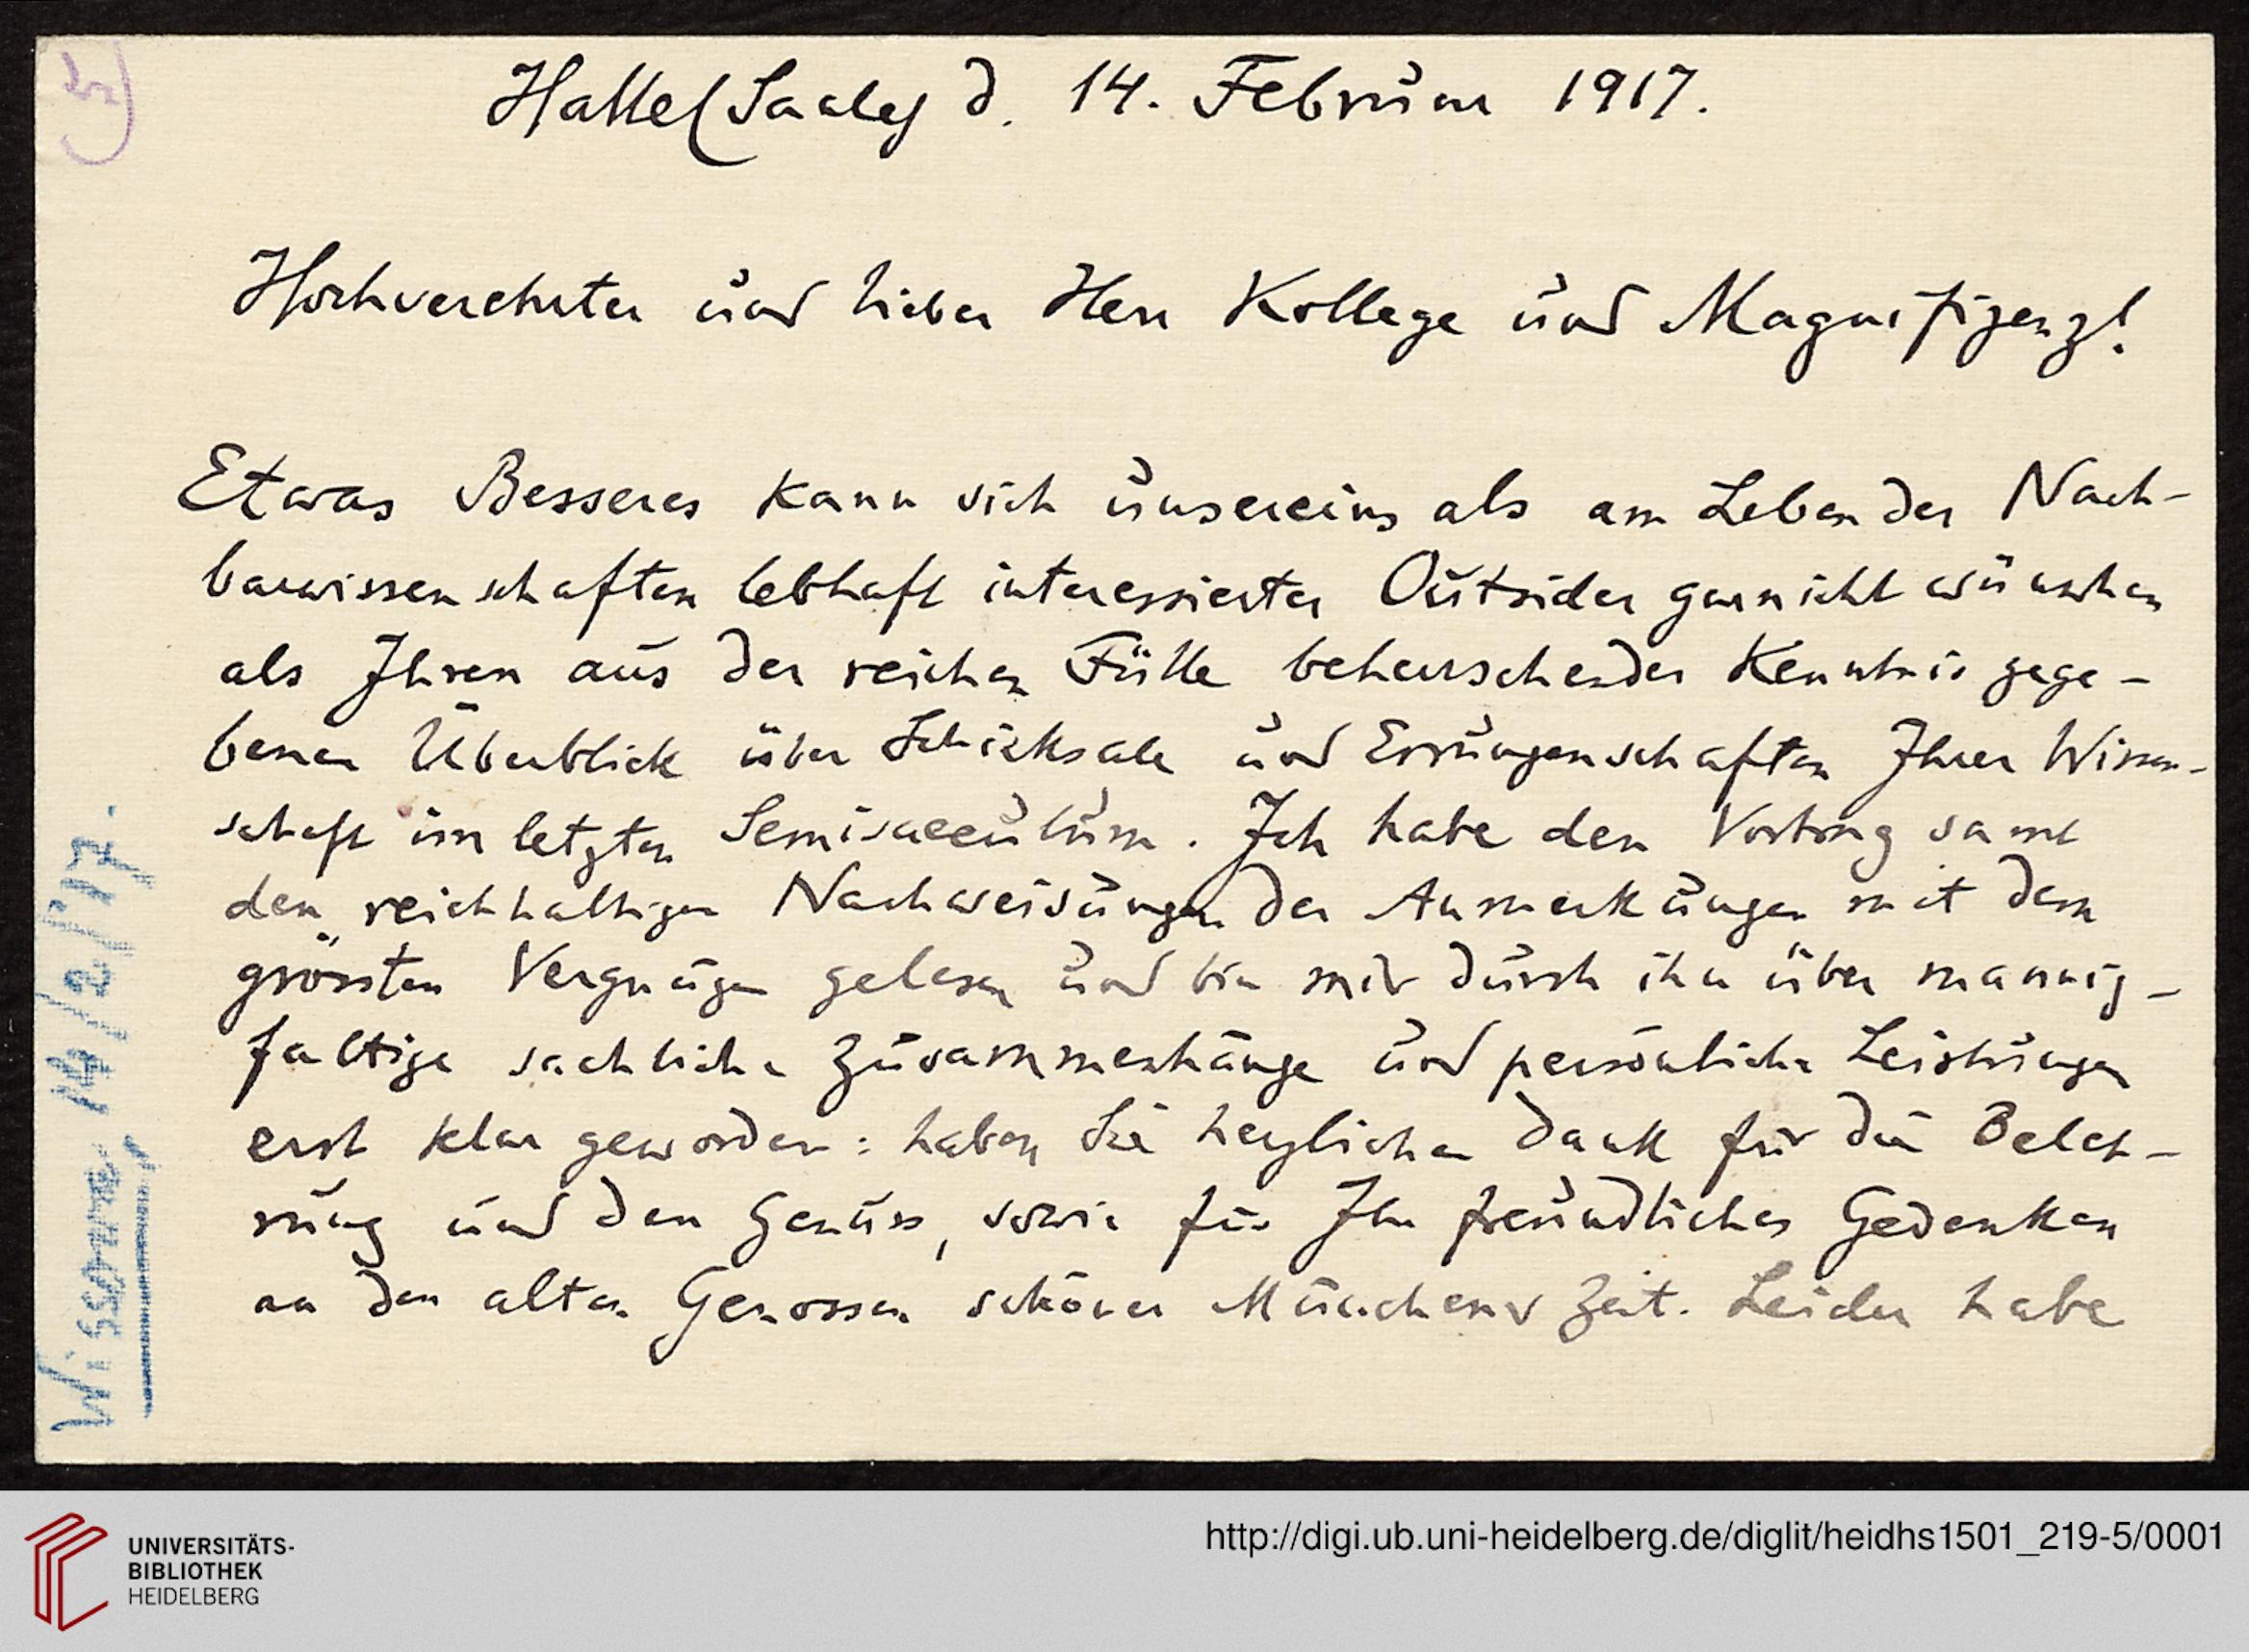 Halle (Saale) d. 14. Februar 1917.
Hochverehrter und lieber Herr Kollege und Magnifizenz!
Etwas Besseres kann sich unsereins als am Leben der Nach-
barwissenschaften lebhaft interessierter Outsider garnicht wünschen
als Ihren aus der reichen Fülle beherrschender Kenntnis gege-
benen Überblick über Schicksale und Errungenschaften Ihrer Wissen-
schaft im letzten Semisaeculum. Ich habe den Vortrag samt
den reichhaltigen Nachweisungen der Anmerkungen mit dem
grössten Vergnügen gelesen und bin mir durch ihn über mannig-
faltige sachliche Zusammenhänge und persönliche Leistungen
erst klar geworden: haben Sie herzlichen Dank für die Beleh-
rung und den Genuss, sowie für Ihr freundliches Gedenken
an den alten Genossen schöner Münchener Zeit. Leider habe
Wissowa 14/2/17.
UNIVERSITÄTS-
BIBLIOTHEK
HEIDELBERG
http://digi.ub.uni-heidelberg.de/diglit/heidhs1501_219-5/0001